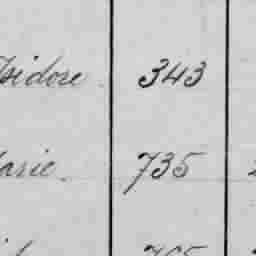 Isidore 343
Marie. 735